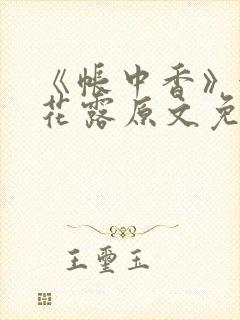 《帐中香》
花露原文免
王玺玉